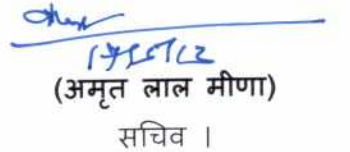 (अमृत लाल मीणा)
सचिव ।